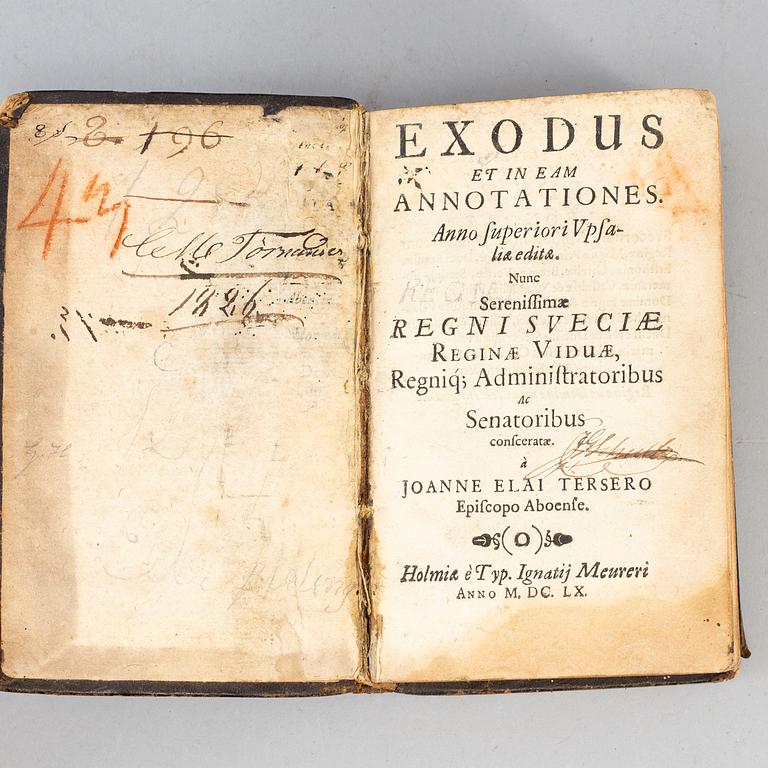 196
43
Törnander
1826
EXODUS
ET IN EAM
ANNOTATIONES.
Anno ſuperiori Vpſa-
liæ editæ.
Nunc
Sereniſſimæ
REGNI SVECIÆ
REGINÆ VIDUÆ,
Regniq́; Adminiſtratoribus
Ac
Senatoribus
conſceratæ.
à
JOANNE ELAI TERSERO
Epiſcopo Aboenſe.
Holmiæ è Typ. Ignatij Meureri
ANNO M. DC. LX.